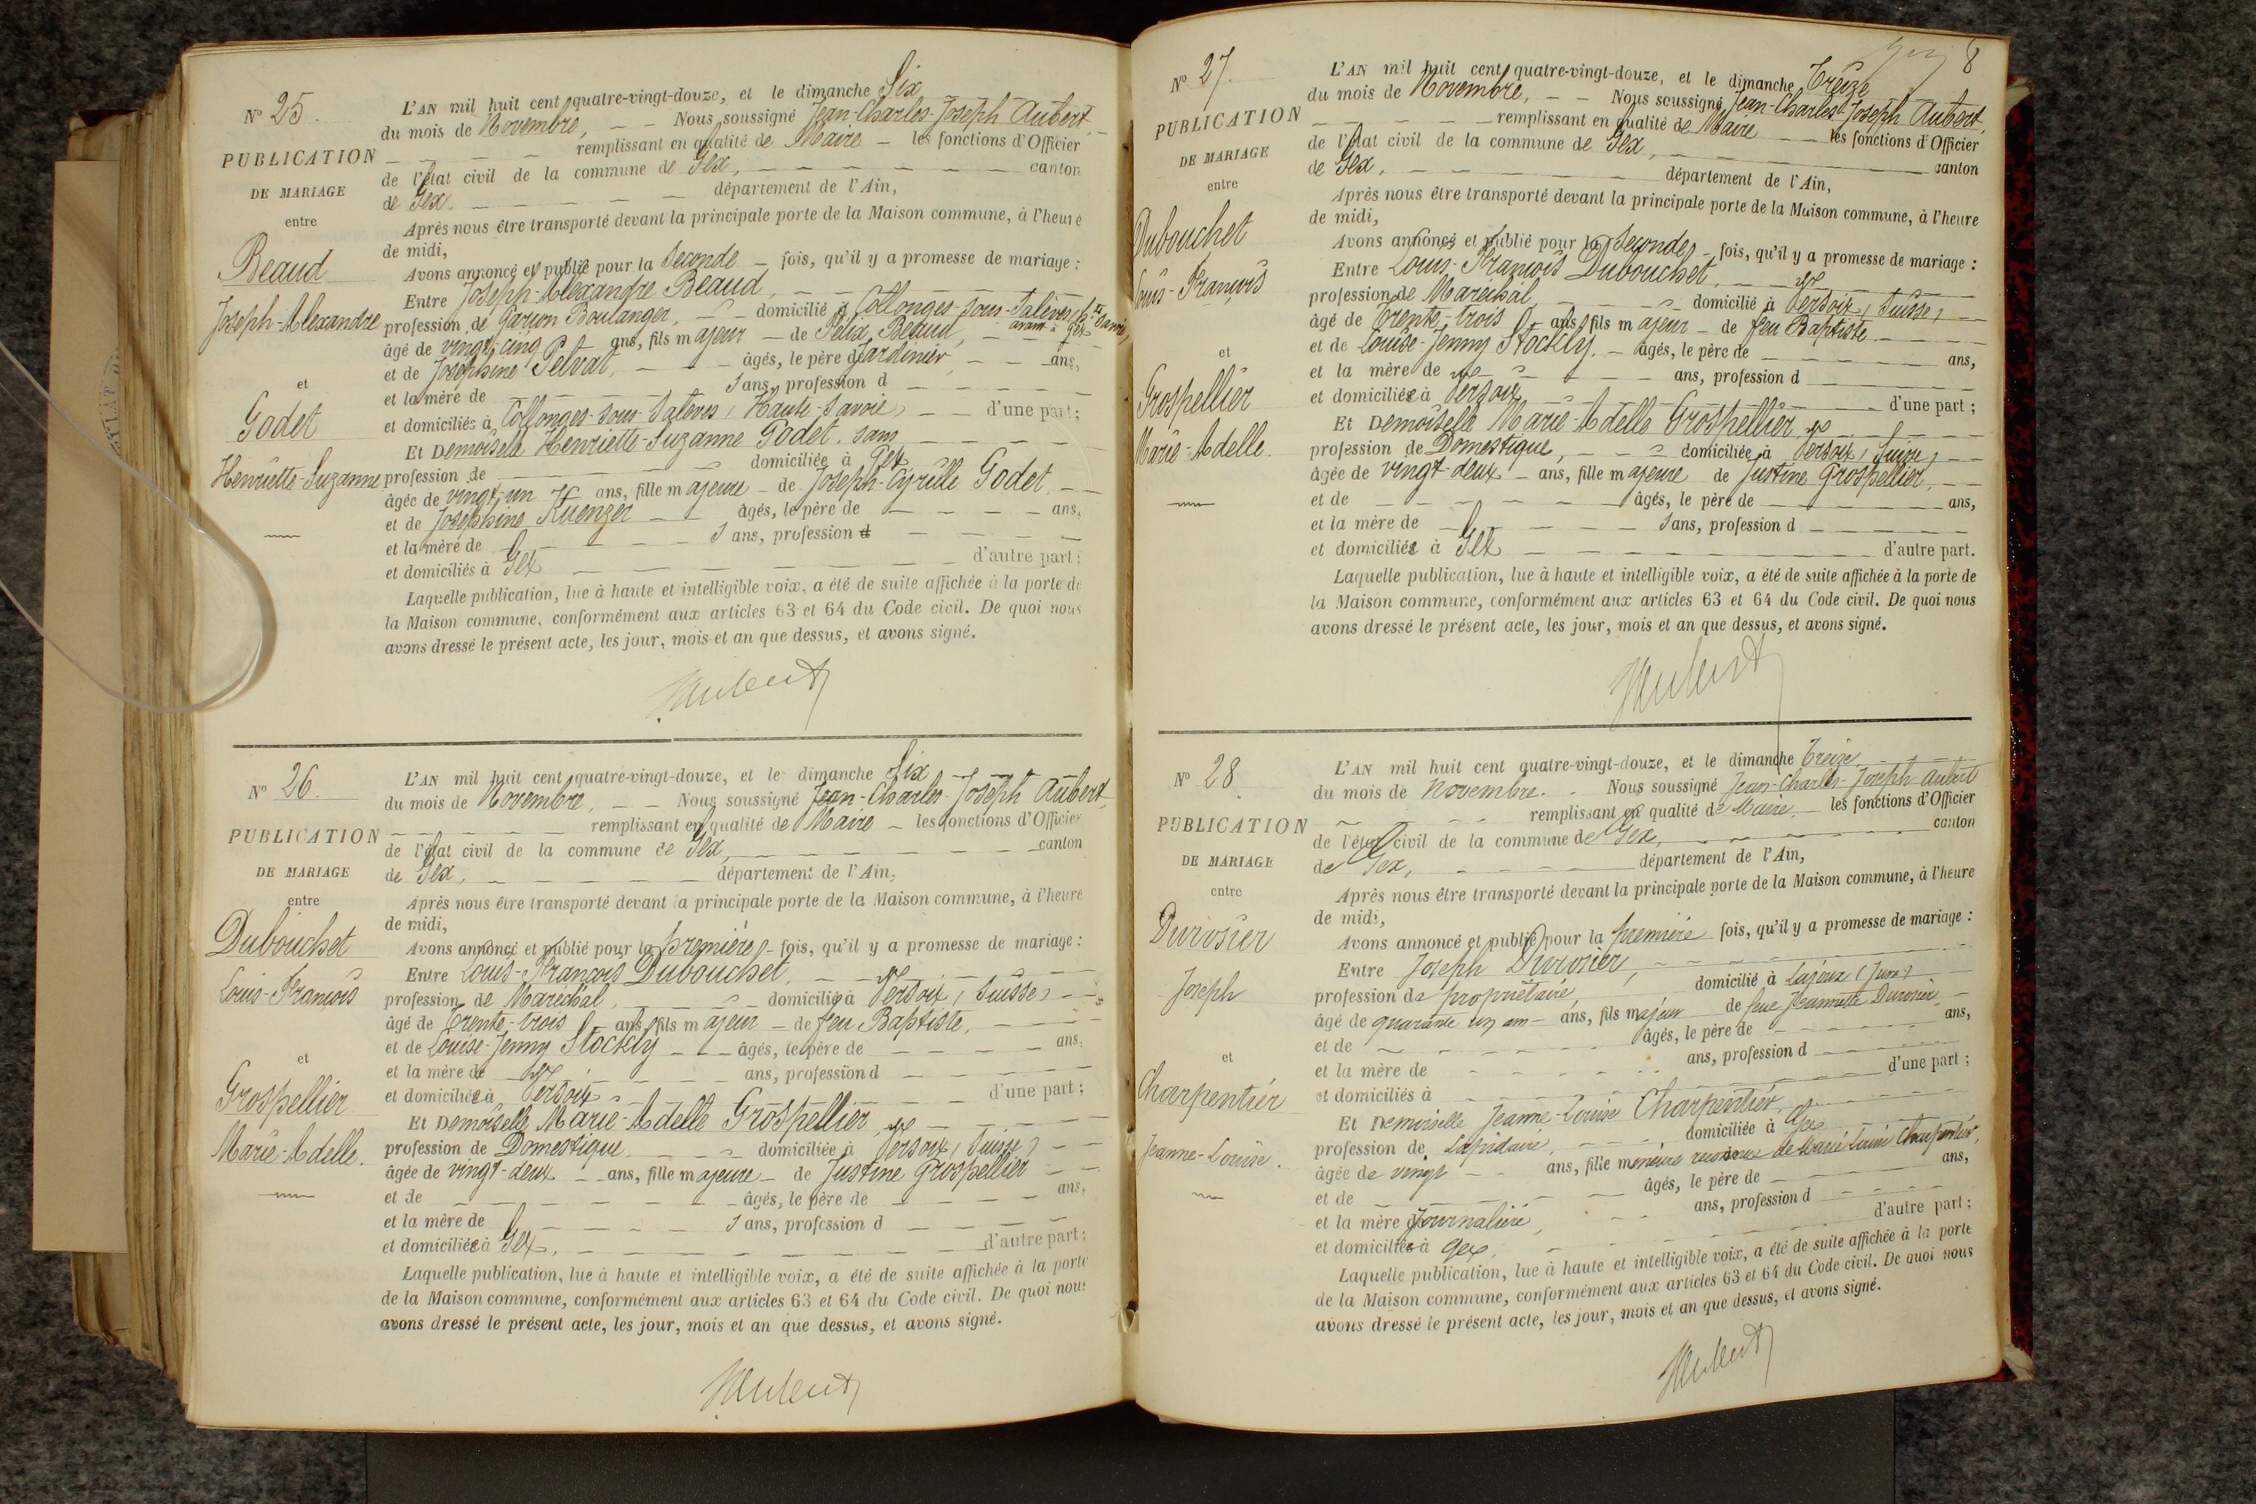 N° 25.
PUBLICATION
DE MARIAGE
entre
Beaud
Joseph-Alexandre
et
Godet
Henriette-Suzanne
L'AN mil huit cent quatre-vingt-douze, et le dimanche Six
du mois de Novembre, Nous soussigné Jean-Charles-Joseph Aubert,
remplissant en qualité de Maire les fonctions d'Officier
de l'état civil de la commune de Gex, canton
de Gex. département de l'Ain,
Après nous être transporté devant la principale porte de la Maison commune, à l'heure
de midi,
Avons annoncé et publié pour la Seconde fois, qu'il y a promesse de mariage :
Entre Joseph-Alexandre Beaud,
profession de Garçon Boulanger, domicilié à Collonges-sous-Salèves, Hte Savoie,
avant à Gex
âgé de vingt-cinq ans, fils majeur de Félix Beaud,
et de Joséphine Pelvat, âgés, le père d Jardinier ans,
et la mère de ans, profession d
et domiciliés à Collonges-sous-Salèves, Haute-Savoie, d'une part ;
Et Demoiselle Henriette-Suzanne Godet, sans
profession de domiciliée à Gex
âgée de vingt-un ans, fille majeure de Joseph-Cyrille Godet
et de Joséphine Kuenzer âgés, le père de ans,
et la mère de ans, profession d
et domiciliés à Gex d'autre part ;
Laquelle publication, lue à haute et intelligible voix, a été de suite affichée à la porte de
la Maison commune, conformément aux articles 63 et 64 du Code civil. De quoi nous
avons dressé le présent acte, les jour, mois et an que dessus, et avons signé.
Aubert
N° 26.
PUBLICATION
DE MARIAGE
entre
Dubouchet
Louis-François
et
Grospellier
Marie-Adelle.
L'AN mil huit cent quatre-vingt-douze, et le dimanche Six
du mois de Novembre, Nous soussigné Jean-Charles-Joseph Aubert,
remplissant en qualité de Maire les fonctions d'Officier
de l'état civil de la commune de Gex, canton
de Gex, département de l'Ain,
Après nous être transporté devant la principale porte de la Maison commune, à l'heure
de midi,
Avons annoncé et publié pour la première fois, qu'il y a promesse de mariage :
Entre Louis-François Dubouchet,
profession de Maréchal, domicilié à Versoix, Suisse,
âgé de trente-trois ans, fils majeur de feu Baptiste,
et de Louise-Jenny Stockly âgés, le père de ans,
et la mère de ans, profession d
et domiciliée à Versoix d'une part ;
Et Demoiselle Marie-Adelle Grospellier,
profession de Domestique domiciliée à Versoix, Suisse,
âgée de vingt-deux ans, fille majeure de Justine Grospellier
et de âgés, le père de ans,
et la mère de ans, profession d
et domiciliée à Gex, d'autre part ;
Laquelle publication, lue à haute et intelligible voix, a été de suite affichée à la porte
de la Maison commune, conformément aux articles 63 et 64 du Code civil. De quoi nous
avons dressé le présent acte, les jour, mois et an que dessus, et avons signé.
Aubert
8
N° 27.
PUBLICATION
DE MARIAGE
entre
Dubouchet
Louis-François
et
Grospellier
Marie-Adelle.
L'AN mil huit cent quatre-vingt-douze, et le dimanche Treize
du mois de Novembre, Nous soussigné Jean-Charles-Joseph Aubert,
remplissant en qualité de Maire les fonctions d'Officier
de l'état civil de la commune de Gex, canton
de Gex, département de l'Ain,
Après nous être transporté devant la principale porte de la Maison commune, à l'heure
de midi,
Avons annoncé et publié pour la Seconde fois, qu'il y a promesse de mariage :
Entre Louis-François Dubouchet,
profession de Maréchal, domicilié à Versoix, Suisse,
âgé de trente-trois ans, fils majeur de feu Baptiste
et de Louise-Jenny Stockly, âgés, le père de ans,
et la mère de ans, profession d
et domiciliée à Versoix d'une part ;
Et Demoiselle Marie-Adelle Grospellier,
profession de Domestique, domiciliée à Versoix, Suisse,
âgée de vingt-deux ans, fille majeure de Justine Grospellier,
et de âgés, le père de ans,
et la mère de ans, profession d
et domiciliée à Gex d'autre part.
Laquelle publication, lue à haute et intelligible voix, a été de suite affichée à la porte de
la Maison commune, conformément aux articles 63 et 64 du Code civil. De quoi nous
avons dressé le présent acte, les jour, mois et an que dessus, et avons signé.
Aubert
N° 28.
PUBLICATION
DE MARIAGE
entre
Durosier
Joseph
et
Charpentier
Jeanne-Louise.
L'AN mil huit cent quatre-vingt-douze, et le dimanche treize
du mois de Novembre. Nous soussigné Jean-Charles-Joseph Aubert
remplissant en qualité de Maire les fonctions d'Officier
de l'état civil de la commune de Gex, canton
de Gex, département de l'Ain,
Après nous être transporté devant la principale porte de la Maison commune, à l'heure
de midi,
Avons annoncé et publié pour la première fois, qu'il y a promesse de mariage :
Entre Joseph Durosier,
profession de propriétaire, domicilié à Lajoux (Jura)
âgé de quarante un ans ans, fils majeur de feue Jeannette Durosier
et de âgés, le père de ans,
et la mère de ans, profession d
et domiciliés à d'une part ;
Et Demoiselle Jeanne-Louise Charpentier,
profession de Lapidaire, domiciliée à Gex
âgée de vingt ans, fille mineure reconnue de Marie Louise Charpentier,
et de âgés, le père de ans,
et la mère d Journalière, ans, profession d
et domiciliée à Gex, d'autre part ;
Laquelle publication, lue à haute et intelligible voix, a été de suite affichée à la porte
de la Maison commune, conformément aux articles 63 et 64 du Code civil. De quoi nous
avons dressé le présent acte, les jour, mois et an que dessus, et avons signé.
Aubert